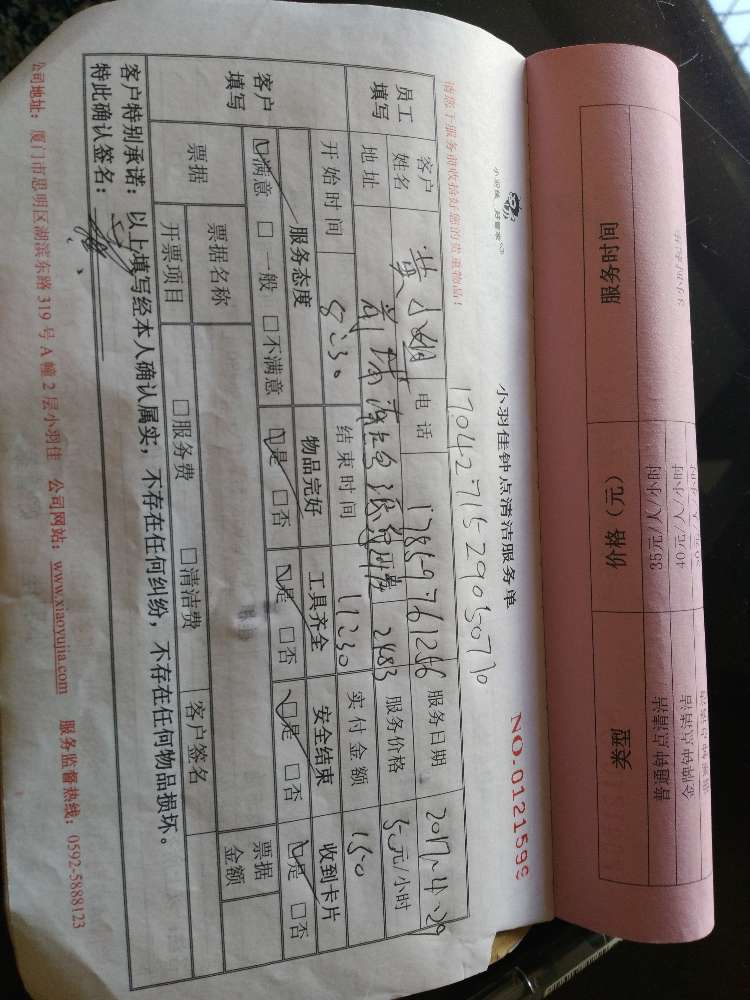 服务时间 价格（元） 类型
35元/人/小时 普通钟点清洁
40元/人/小时 金牌钟点清洁
小羽佳钟点清洁服务单
NO.0121598
请您于服务前收拾好您的贵重物品！
员工填写 客户姓名 黄小姐 电话 服务日期 2017.4.29
地址 服务价格 50元/小时
开始时间 8:30 结束时间 11:30 实付金额 150
客户填写 服务态度 物品完好 工具齐全 安全结束 收到卡片
☑满意 □一般 □不满意 ☑是 □否 ☑是 □否 ☑是 □否 ☑是 □否
票据 票据名称 □服务费 □清洁费 客户签名 票据金额
开票项目
客户特别承诺：以上填写经本人确认属实，不存在任何纠纷，不存在任何物品损坏。
特此确认签名：
公司地址：厦门市思明区湖滨东路 319 号 A 幢 2 层小羽佳 公司网站：www.xiaoyujia.com 服务监督热线：0592-5888123